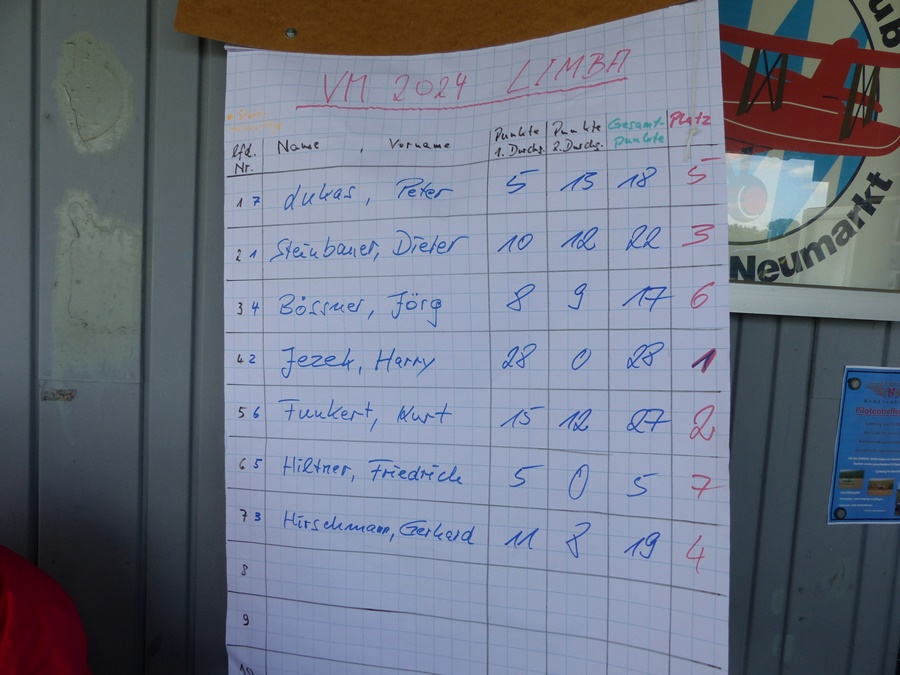 VM 2024 LIMBA
Lfd. Nr. Name , Vorname Punkte 1. Durchg. Punkte 2. Durchg. Gesamt-punkte Platz
1 7 Lukas, Peter 5 13 18 5
2 1 Steinbauer, Dieter 10 12 22 3
3 4 Bössner, Jörg 8 9 17 6
4 2 Jezek, Harry 28 0 28 1
5 6 Funkert, Kurt 15 12 27 2
6 5 Hiltner, Friedrich 5 0 5 7
7 3 Hirschmann, Gerhard 11 8 19 4
8
9
10
ub
Neumarkt